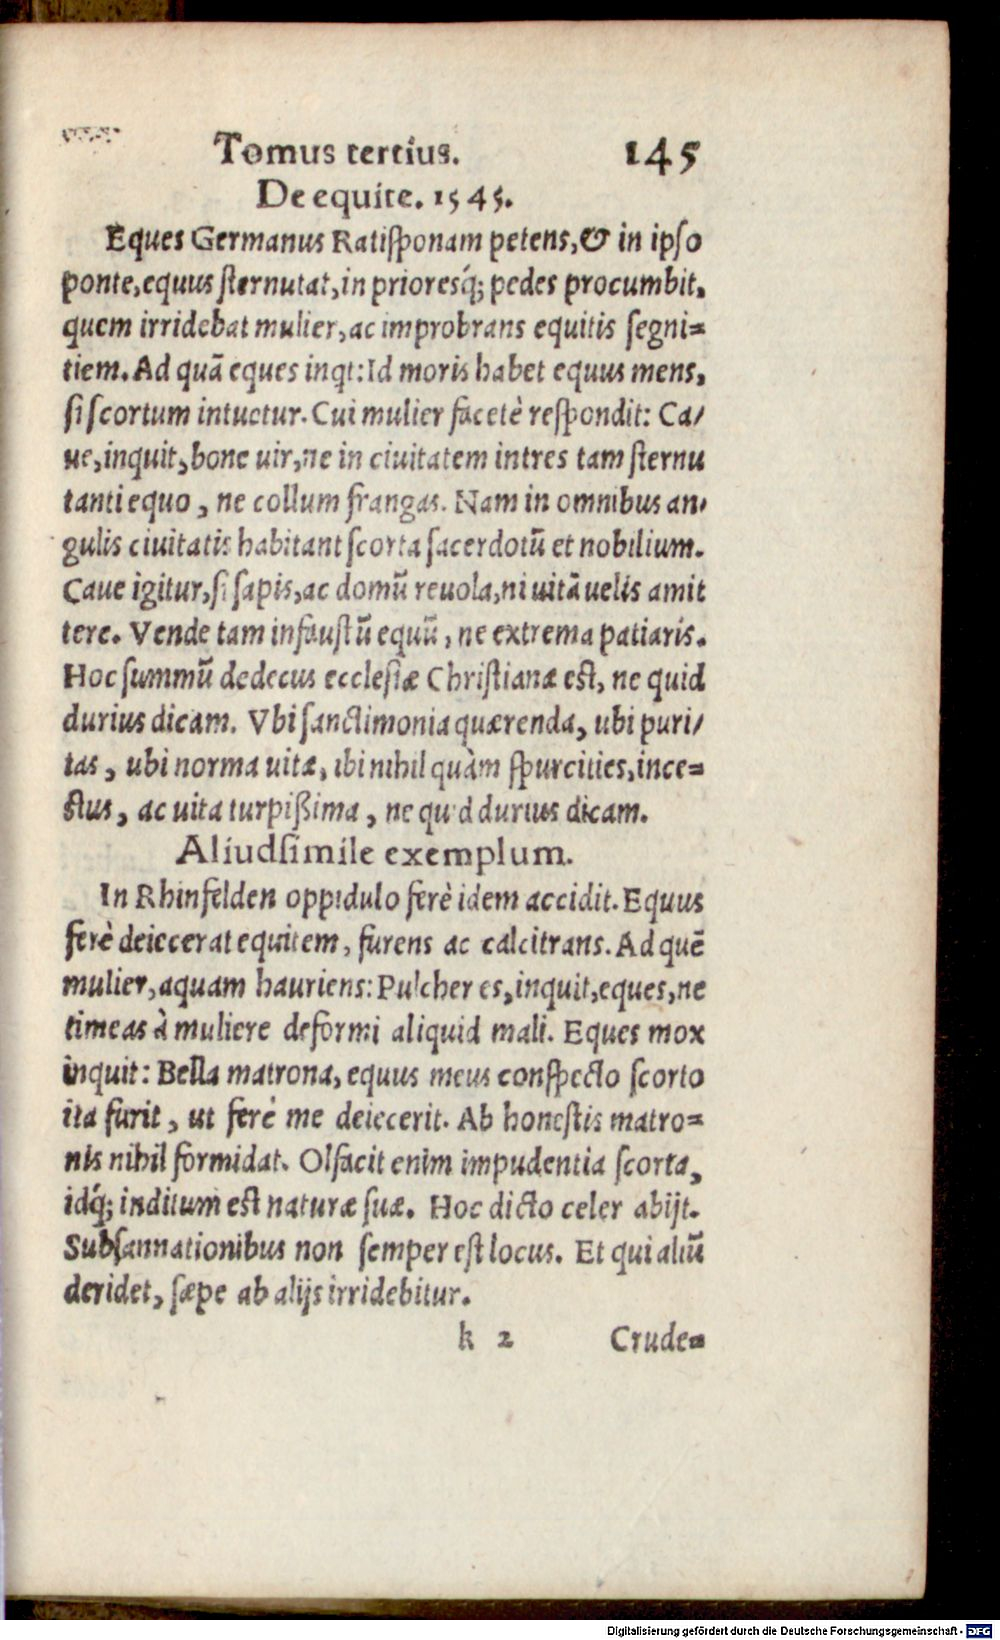 Tomus tertius. 145
De equite. 1545.
Eques Germanus Ratisponam petens, & in ipso
ponte, equus sternutat, in prioresq́; pedes procumbit,
quem irridebat mulier, ac improbrans equitis segni=
tiem. Ad quā eques inqt: Id moris habet equus meus,
si scortum intuetur. Cui mulier facetè respondit: Ca/
ue, inquit, bone uir, ne in ciuitatem intres tam sternu
tanti equo, ne collum frangas. Nam in omnibus an/
gulis ciuitatis habitant scorta sacerdotū et nobilium.
Caue igitur, si sapis, ac domū reuola, ni uitā uelis amit
tere. Vende tam infaustū equū, ne extrema patiaris.
Hoc summū dedecus ecclesiæ Christianæ est, ne quid
durius dicam. Vbi sanctimonia quærenda, ubi puri/
tas, ubi norma uitæ, ibi nihil quàm spurcities, ince=
stus, ac uita turpißima, ne quid durius dicam.
Aliud simile exemplum.
In Rhinfelden oppidulo ferè idem accidit. Equus
ferè deiecerat equitem, furens ac calcitrans. Ad quē
mulier, aquam hauriens: Pulcher es, inquit, eques, ne
timeas à muliere deformi aliquid mali. Eques mox
inquit: Bella matrona, equus meus conspecto scorto
ita furit, ut ferè me deiecerit. Ab honestis matro=
nis nihil formidat. Olfacit enim impudentia scorta,
idq́; inditum est naturæ suæ. Hoc dicto celer abijt.
Subsannationibus non semper est locus. Et qui aliū
deridet, sæpe ab alijs irridebitur.
k 2 Crude=
Digitalisierung gefördert durch die Deutsche Forschungsgemeinschaft - DFG